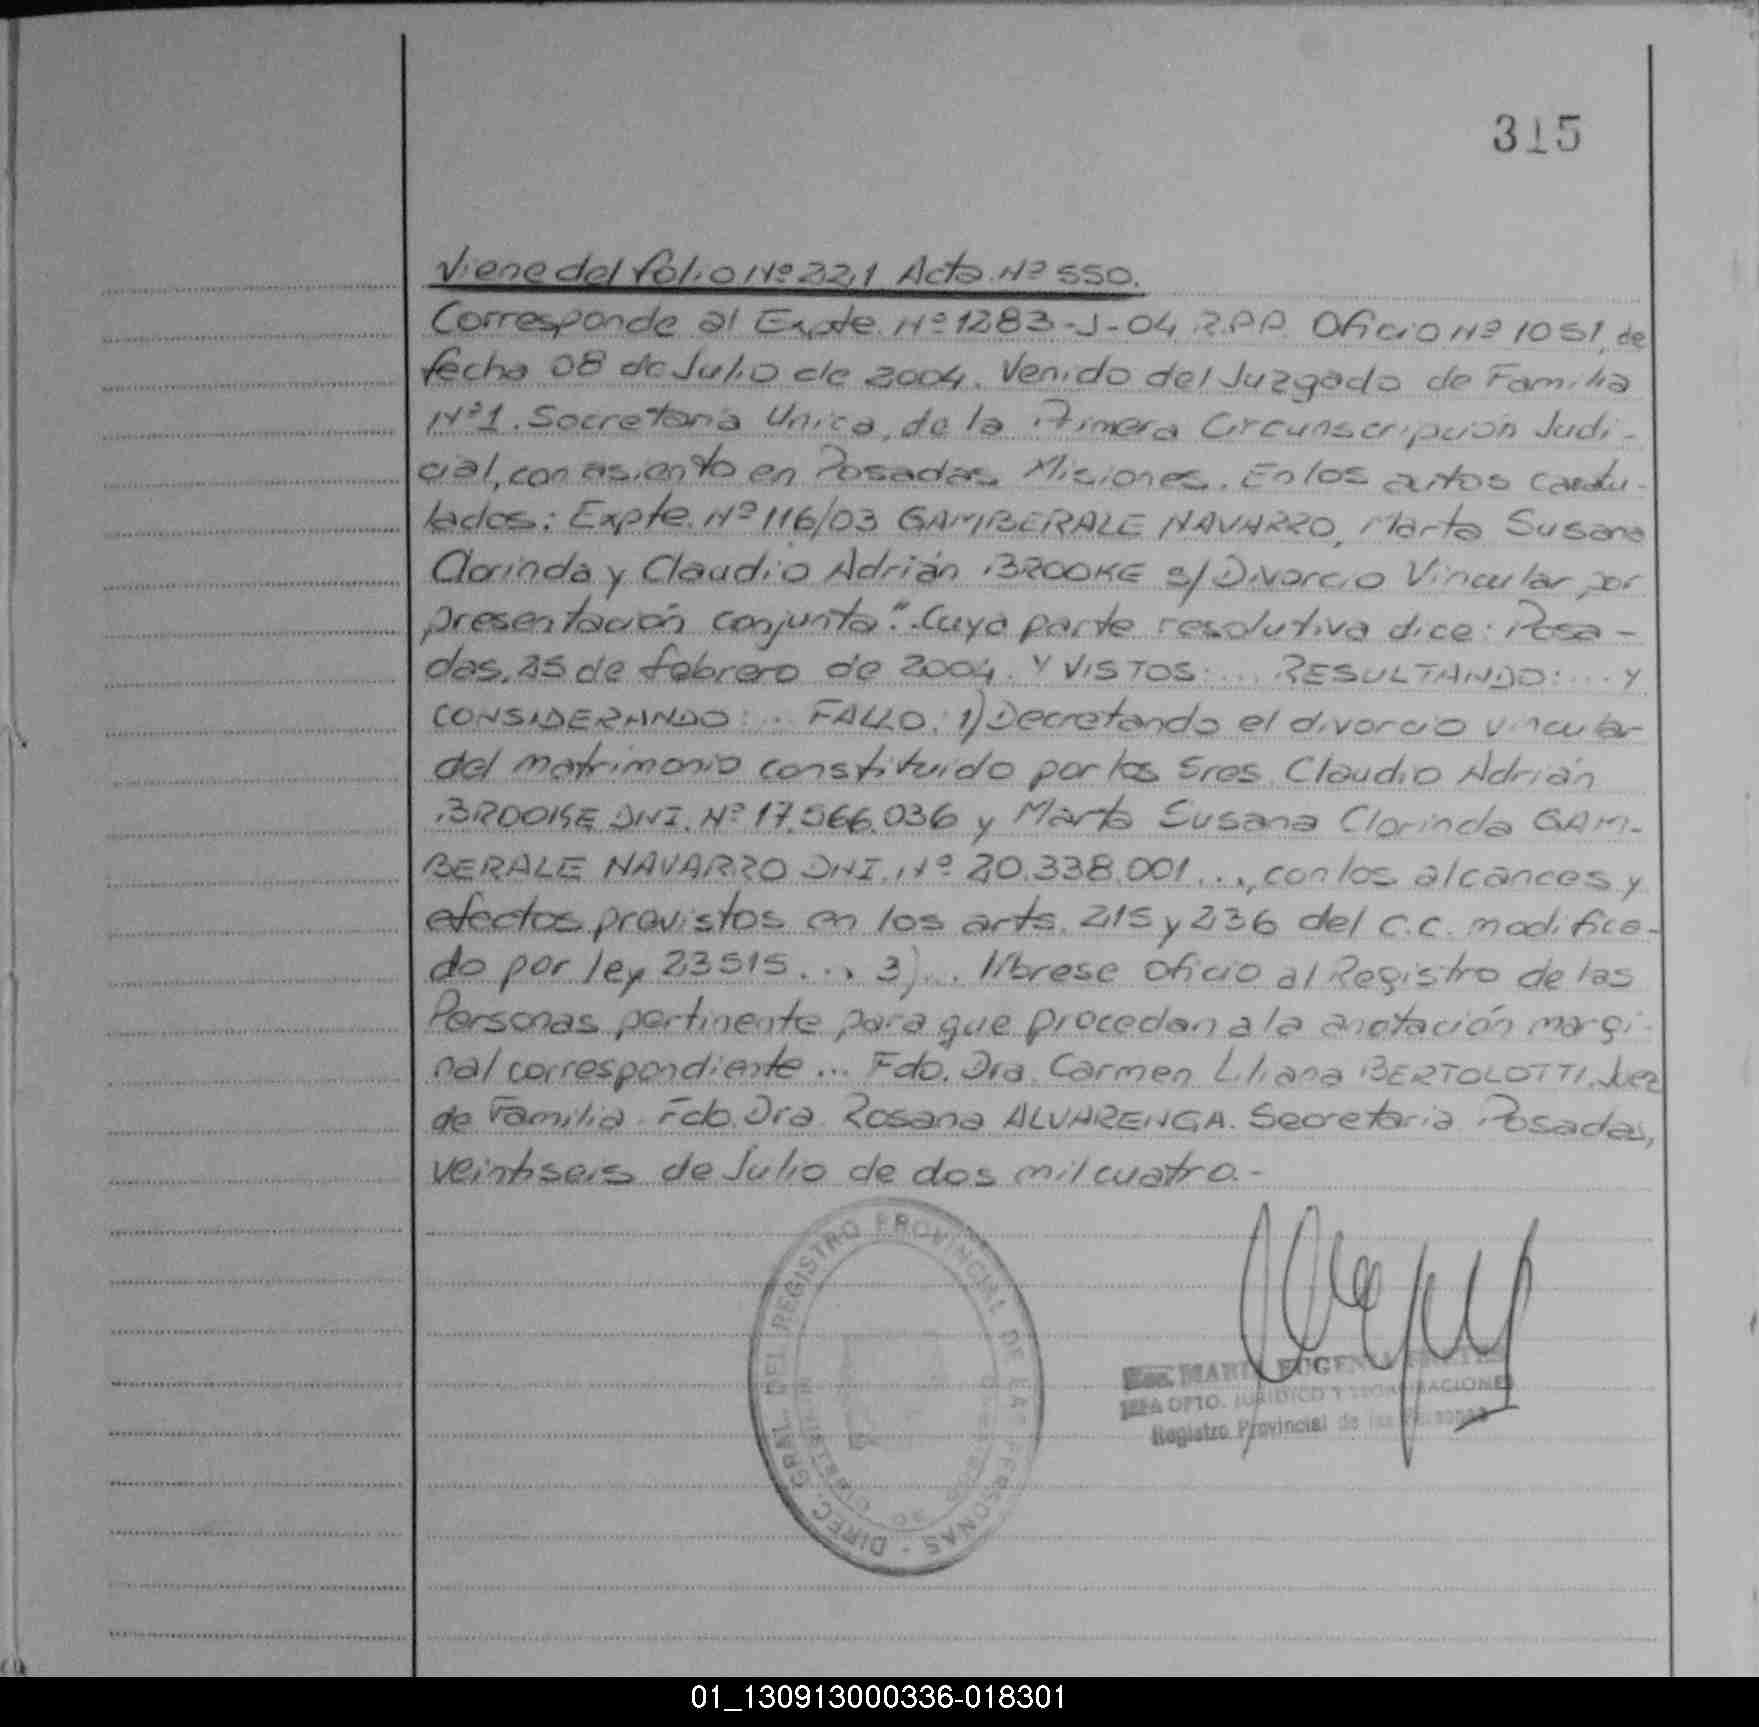 315
Viene del folio Nº 221 Acta Nº 550.
Corresponde al Expte. Nº 1283-J-04 R.P.P. Oficio Nº 1051, de
fecha 08 de Julio de 2004. Venido del Juzgado de Familia
Nº1. Secretaria Unica, de la Primera Circunscripción Judi-
cial, con asiento en Posadas Misiones. En los autos caratu-
lados: Expte. Nº 116/03 GAMBERALE NAVARRO, Marta Susana
Clorinda y Claudio Adrián BROOKE s/ Divorcio Vincular por
presentación conjunta". Cuya parte resolutiva dice: Posa-
das, 25 de febrero de 2004. Y VISTOS: ... RESULTANDO: ... Y
CONSIDERANDO: .. FALLO: 1) Decretando el divorcio vincular
del matrimonio constituido por los Sres. Claudio Adrián
BROOKE DNI. Nº 17.566.036 y Marta Susana Clorinda GAM-
BERALE NAVARRO DNI. Nº 20.338.001 ..., con los alcances y
efectos previstos en los arts. 215 y 236 del C.C. modifica-
do por ley 23515 ... 3) ... líbrese oficio al Registro de las
Personas pertinente para que procedan a la anotación margi-
nal correspondiente ... Fdo. Dra. Carmen Liliana BERTOLOTTI. Juez
de Familia. Fdo. Dra. Rosana ALVARENGA. Secretaria Posadas,
veintiseis de Julio de dos mil cuatro.-
DIREC. GRAL. DEL REGISTRO PROVINCIAL DE LAS PERSONAS -
MARIA EUGENIA
JEFA DPTO. JURIDICO Y
Registro Provincial de las Personas
01_130913000336-018301